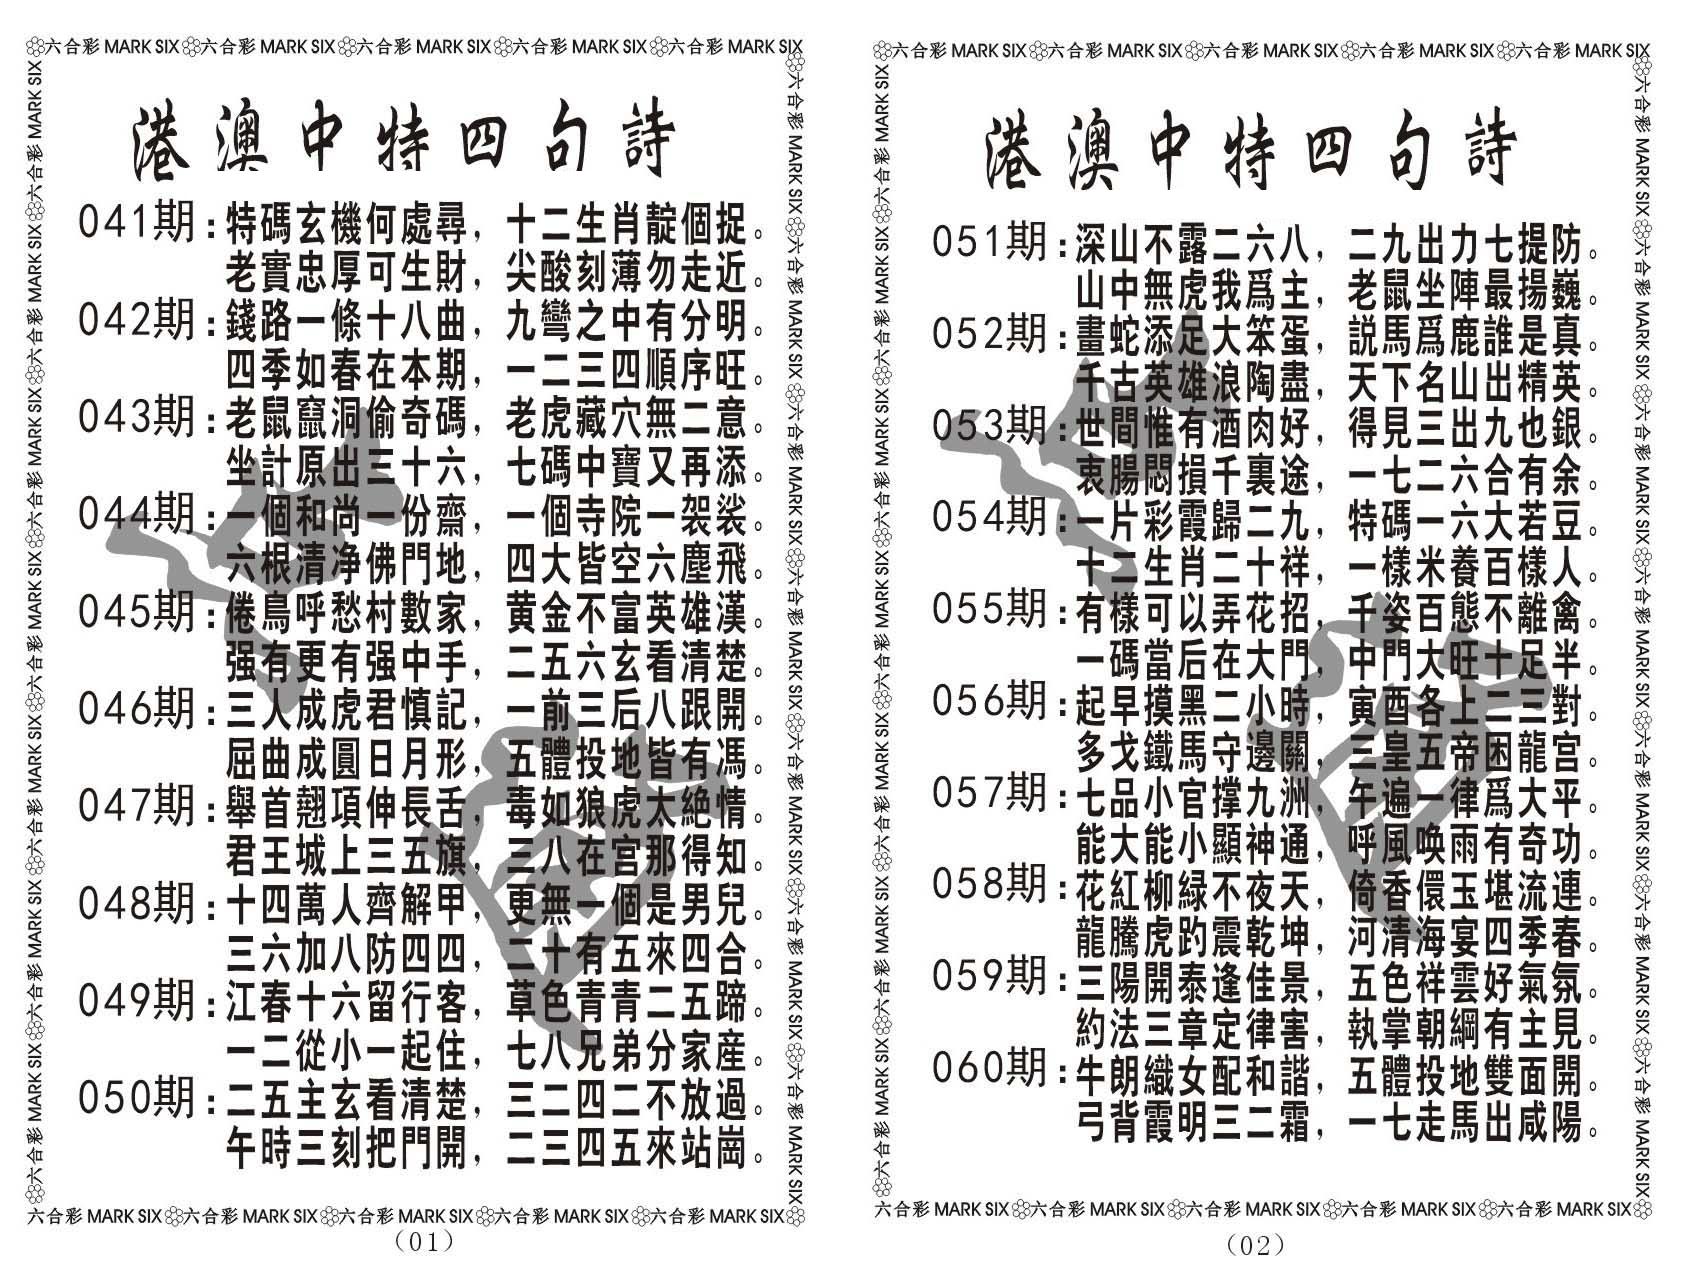 六合彩 MARK SIX 六合彩 MARK SIX 六合彩 MARK SIX 六合彩 MARK SIX 六合彩 MARK SIX
港澳中特四句詩
041期:特碼玄機何處尋，十二生肖靛個捉。
老實忠厚可生財，尖酸刻薄勿走近。
042期:錢路一條十八曲，九彎之中有分明。
四季如春在本期，一二三四順序旺。
043期:老鼠竄洞偷奇碼，老虎藏穴無二意。
坐計原出三十六，七碼中寶又再添。
044期:一個和尚一份齋，一個寺院一袈裟。
六根清净佛門地，四大皆空六塵飛。
045期:倦鳥呼愁村數家，黄金不富英雄漢。
强有更有强中手，二五六玄看清楚。
046期:三人成虎君慎記，一前三后八跟開。
屈曲成圓日月形，五體投地皆有馮。
047期:舉首翹項伸長舌，毒如狼虎太絶情。
君王城上三五旗，三八在宫那得知。
048期:十四萬人齊解甲，更無一個是男兒。
三六加八防四四，二十有五來四合。
049期:江春十六留行客，草色青青二五蹄。
一二從小一起住，七八兄弟分家産。
050期:二五主玄看清楚，三二四二不放過。
午時三刻把門開，二三四五來站崗。
六合彩 MARK SIX 六合彩 MARK SIX 六合彩 MARK SIX 六合彩 MARK SIX 六合彩 MARK SIX
（01）
六合彩 MARK SIX 六合彩 MARK SIX 六合彩 MARK SIX 六合彩 MARK SIX 六合彩 MARK SIX
港澳中特四句詩
051期:深山不露二六八，二九出力七提防。
山中無虎我爲主，老鼠坐陣最揚巍。
052期:畫蛇添足大笨蛋，説馬爲鹿誰是真。
千古英雄浪陶盡，天下名山出精英。
053期:世間惟有酒肉好，得見三出九也銀。
衷腸悶損千裏途，一七二六合有余。
054期:一片彩霞歸二九，特碼一六大若豆。
十二生肖二十祥，一樣米養百樣人。
055期:有樣可以弄花招，千姿百態不離禽。
一碼當后在大門，中門大旺十足半。
056期:起早摸黑二小時，寅酉各上二三對。
多戈鐵馬守邊關，三皇五帝困龍宫。
057期:七品小官撑九洲，午遍一律爲大平。
能大能小顯神通，呼風唤雨有奇功。
058期:花紅柳緑不夜天，倚香儇玉堪流連。
龍騰虎趵震乾坤，河清海宴四季春。
059期:三陽開泰逢佳景，五色祥雲好氣氛。
約法三章定律害，執掌朝綱有主見。
060期:牛朗織女配和諧，五體投地雙面開。
弓背霞明三二霜，一七走馬出咸陽。
六合彩 MARK SIX 六合彩 MARK SIX 六合彩 MARK SIX 六合彩 MARK SIX 六合彩 MARK SIX
（02）